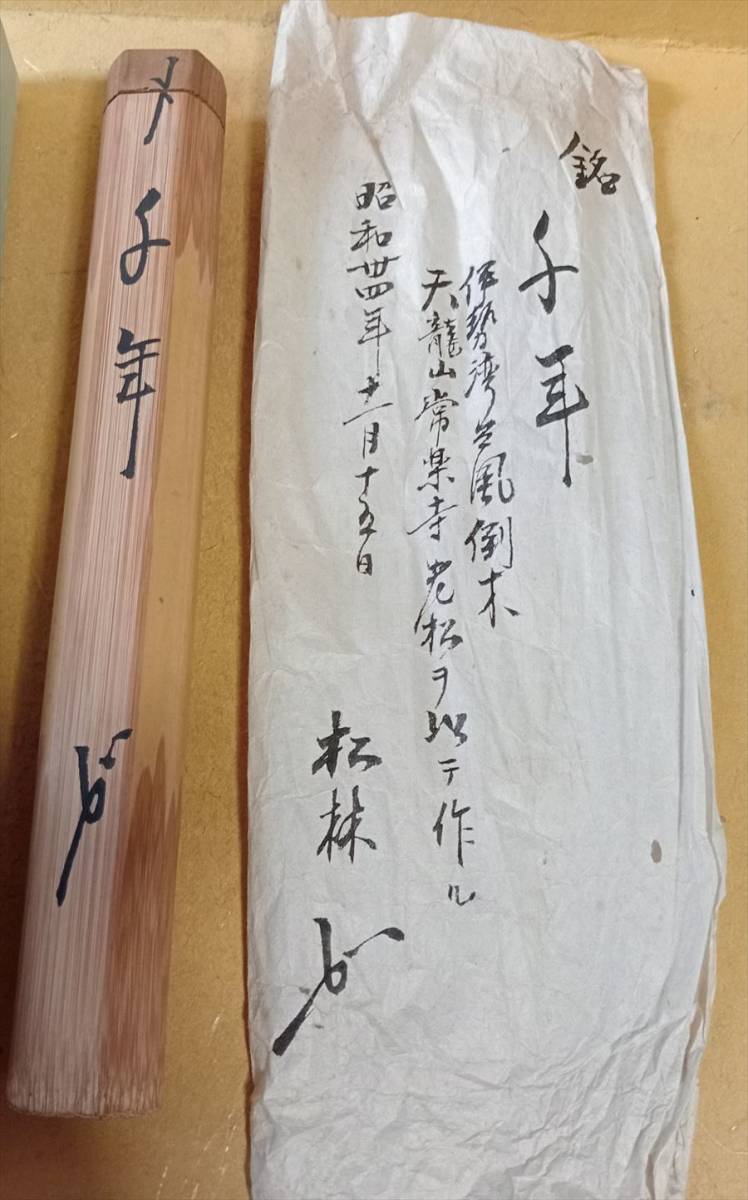 銘
千年
伊勢湾台風倒木
天龍山常楽寺老松ヲ以テ作ル
昭和卅四年十一月十五日
松林
〆
千年